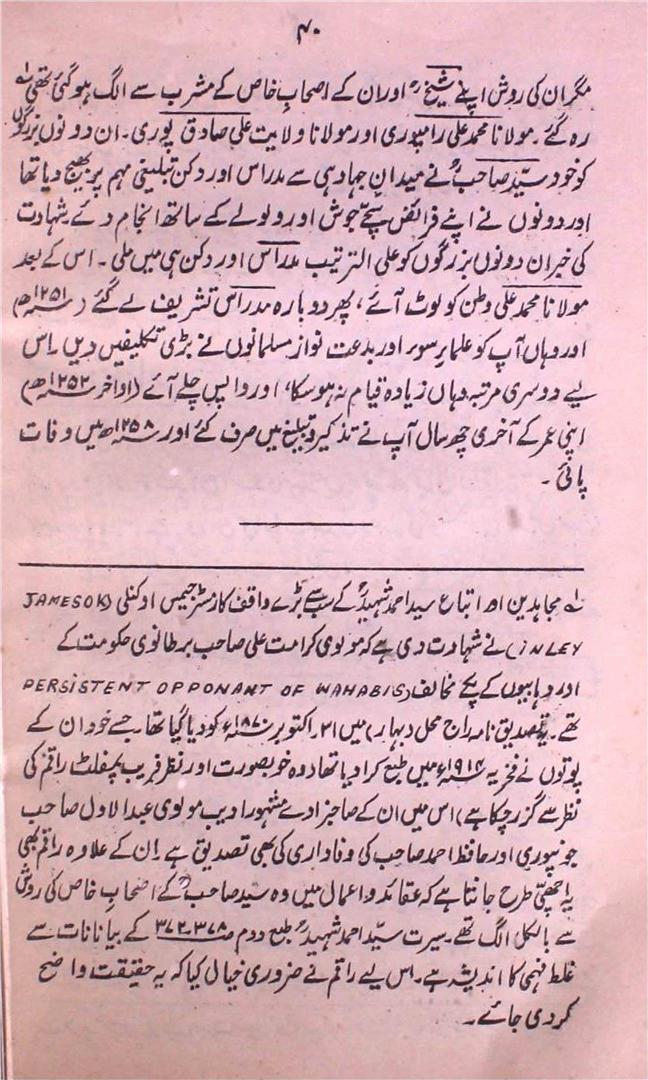 ۴۰
مگر ان کی روش اپنے شیخؒ اور ان کے اصحابِ خاص کے مشرب سے الگ ہو گئی تھی لہ
رہ گئے۔ مولانا محمد علی رامپوری اور مولانا ولایت علی صادق پوری۔ ان دونوں بزرگوں
کو خود سیّد صاحبؒ نے میدانِ جہاد ہی سے مدراس اور دکن تبلیغی مہم پر بھیج دیا تھا
اور دونوں نے اپنے فرائض سچّے جوش اور ولولے کے ساتھ انجام دئے شہادت
کی خبر ان دونوں بزرگوں کو علی الترتیب مدراس اور دکن ہی میں ملی۔ اس کے بعد
مولانا محمد علی وطن کو لوٹ آئے، پھر دوبارہ مدراس تشریف لے گئے (۱۲۵۱ھ)
اور وہاں آپ کو علماءِ سوء اور بدعت نواز مسلمانوں نے بڑی تکلیفیں دیں۔ اس
لیے دوسری مرتبہ وہاں زیادہ قیام نہ ہو سکا، اور واپس چلے آئے (اواخر ۱۲۵۲ھ)
اپنی عمر کے آخری چھ سال آپ نے تذکیر و تبلیغ میں صرف کئے اور ۱۲۵۸ھ میں وفات
پائی۔
لہ مجاہدین اور اتباع سید احمد شہیدؒ کے سب سے بڑے واقف کار مسٹر جیمس اوکنلی (JAMES OK
INLEY) نے شہادت دی ہے کہ مولوی کرامت علی صاحب برطانوی حکومت کے
اور وہابیوں کے پکے مخالف (PERSISTENT OPPONANT OF WAHABIS
تھے۔ یہ تصدیق نامہ راج محل (بہار) میں ۲۱۔ اکتوبر ۱۸۷۰ء کو دیا گیا تھا۔ جسے خود ان کے
پوتوں نے فخریہ ۱۹۱۴ء میں طبع کرا دیا تھا (وہ خوبصورت اور نظر فریب پمفلٹ راقم کی
نظر سے گزر چکا ہے) اس میں ان کے صاحبزادے مشہور ادیب مولوی عبد الاول صاحب
جونپوری اور حافظ احمد صاحب کی وفاداری کی بھی تصدیق ہے۔ ان کے علاوہ راقم بھی
یہ اچھی طرح جانتا ہے کہ عقائد و اعمال میں وہ سیّد صاحبؒ کے اصحابِ خاص کی روش
سے بالکل الگ تھے۔ سیرت سیّد احمد شہیدؒ طبع دوم ص ۳۷۲۔۳۷۸ کے بیانات سے
غلط فہمی کا اندیشہ ہے۔ اس لیے راقم نے ضروری خیال کیا کہ یہ حقیقت واضح
کر دی جائے۔